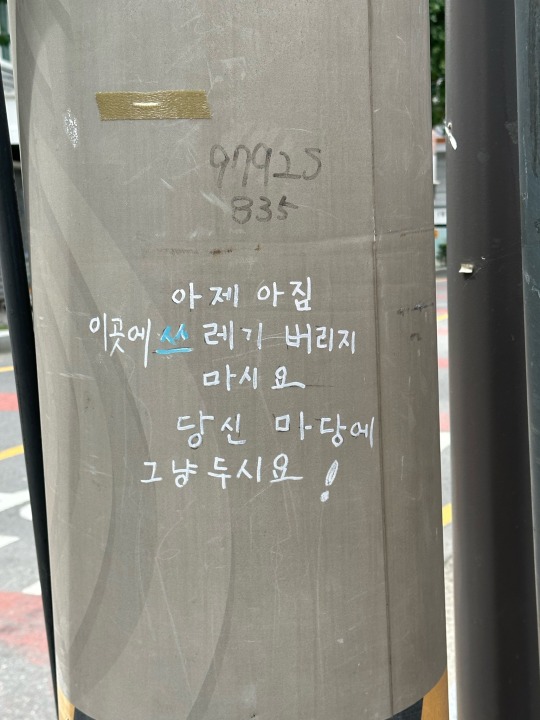 97925
835
아제 아집
이곳에 쓰레기 버리지
마시요
당신 마당에
그냥 두시요!